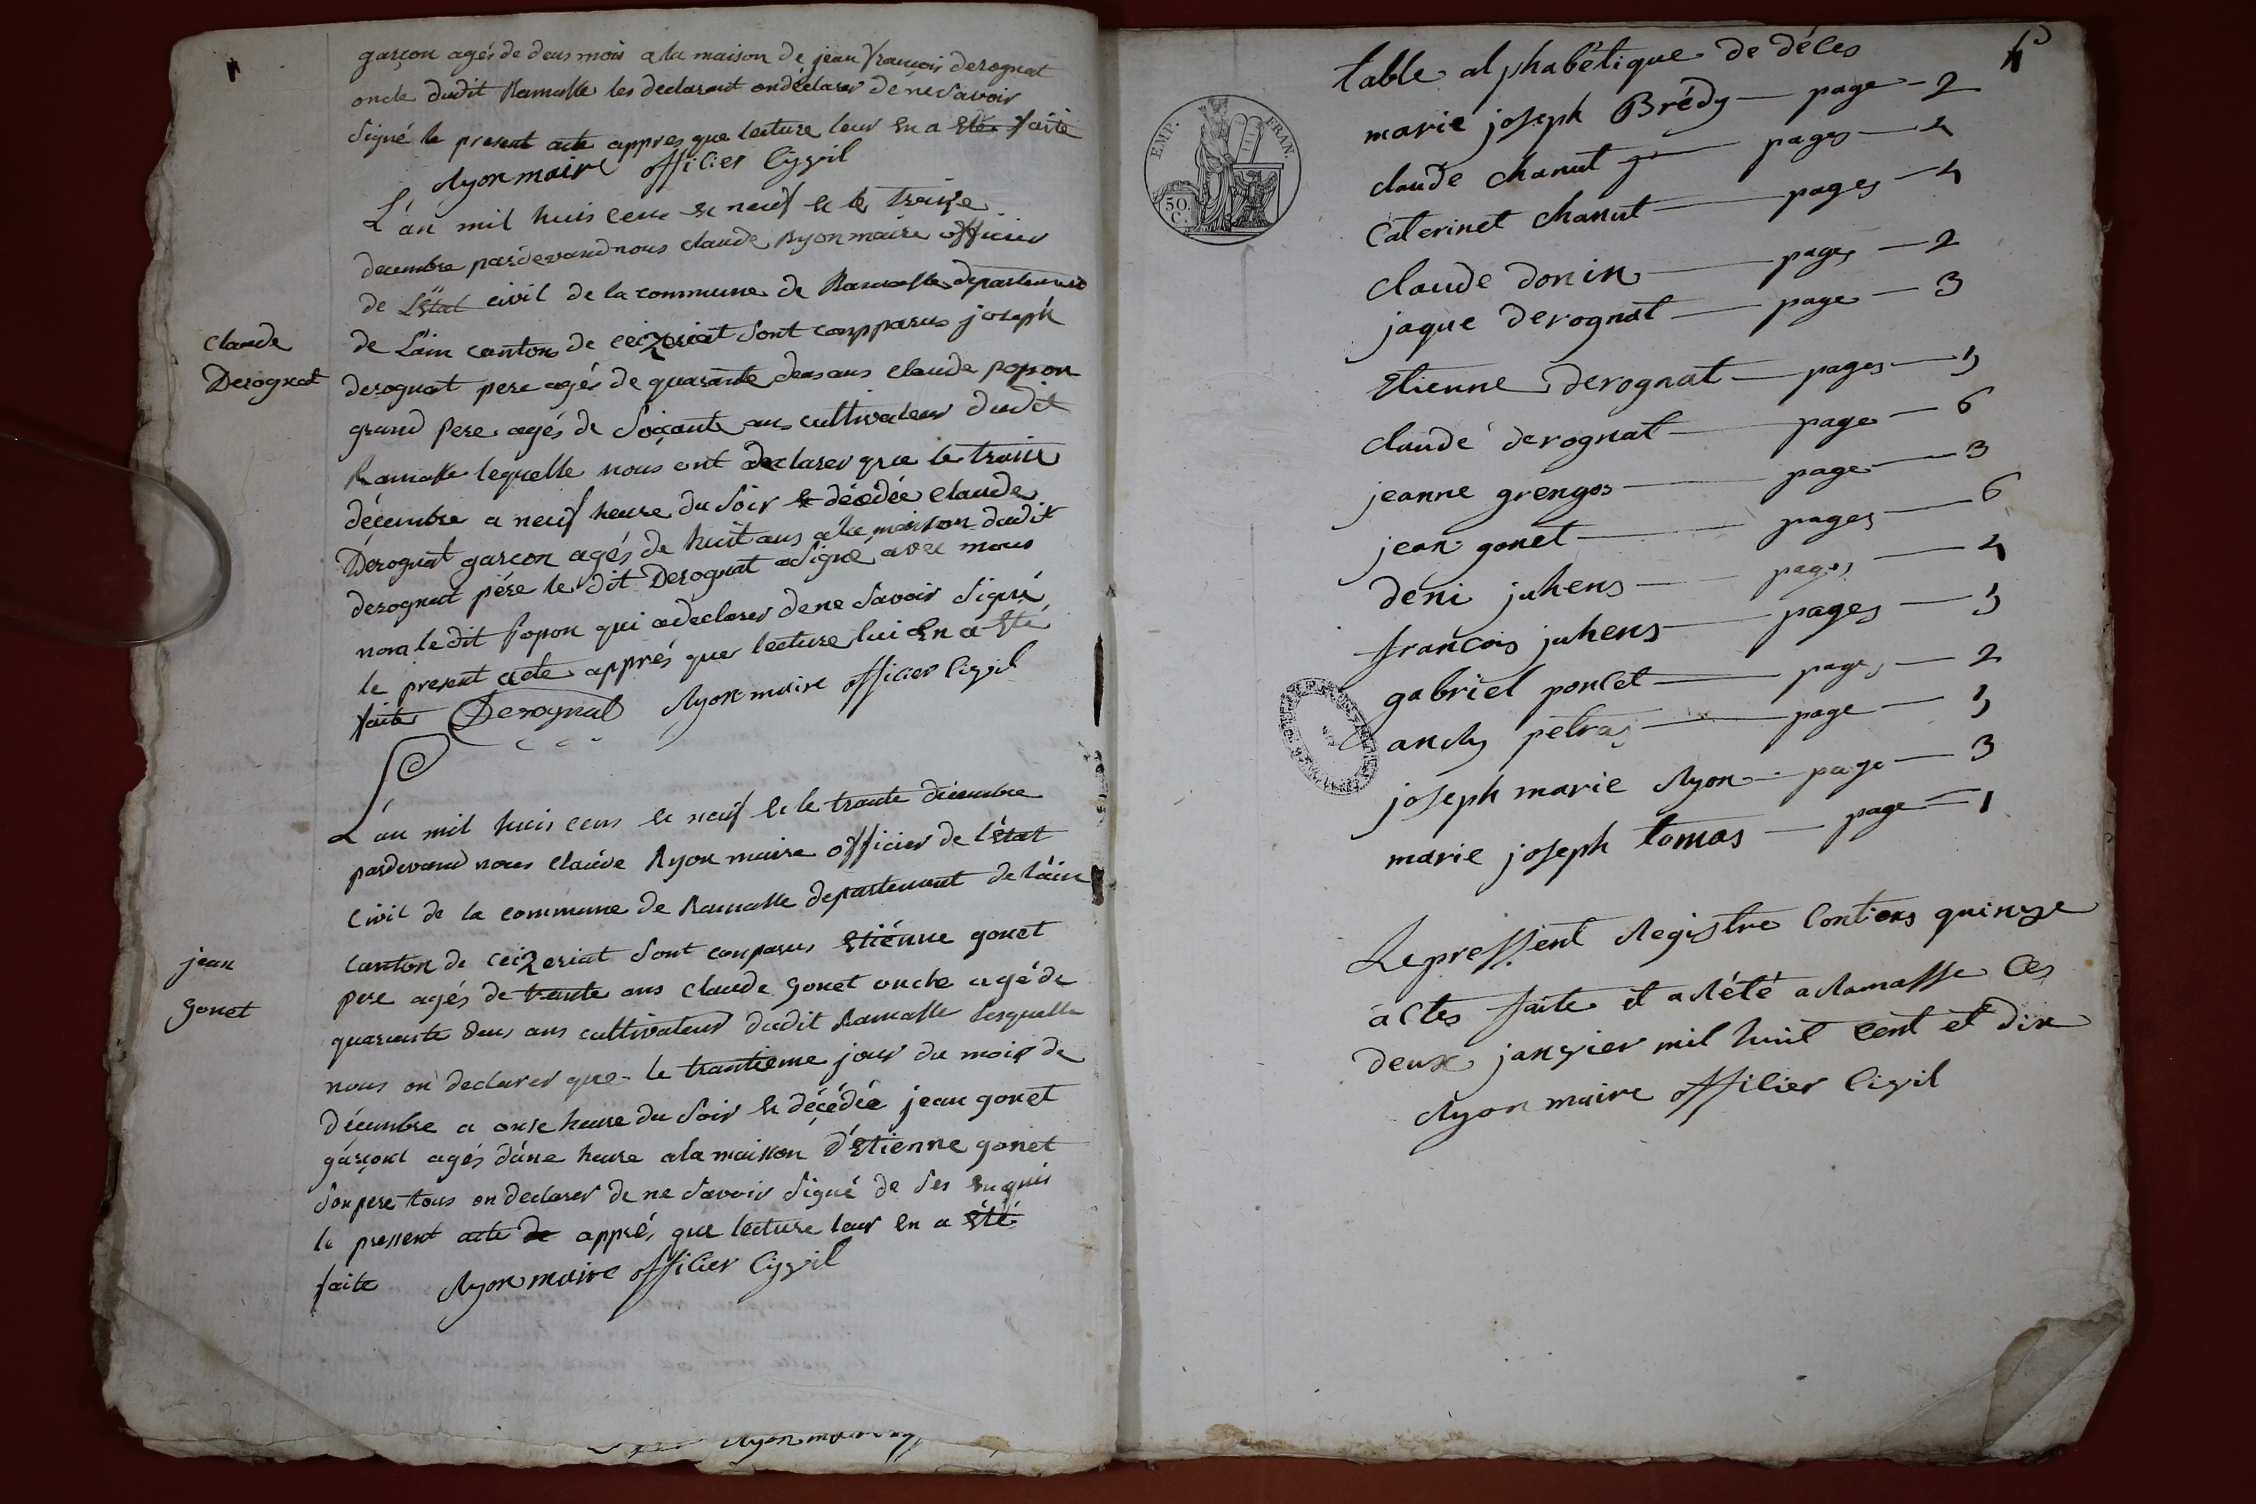 garçon agés de deus mois a la maison de jean françois derognat
oncle dudit Ramasse les declarant on déclarer de ne savoir
signé le present acte appres que lecture leur en a eté faite
Ryon maire officier civil
L'an mil huis cent et neuf et le treize
decembre pardevand nous claude Ryon maire officier
de L'etat civil de la commune de Ramasse departement
de L'ain canton de ceizeriat sont compparus joseph
Claude
Derognat
derognat pere agés de quarante deus ans claude popon
grand pere agés de soixante ans cultivateur dudit
Ramasse lequelle nous ont declarer que le treize
décembre a neuf heure du soir et décédée claude
Derognat garçon agés de huit ans a la maison dudit
derognat pére le dit Derognat a signé avec nous
non le dit popon qui a declarer de ne savoir signé
le present acte apprés que lecture lui en a eté
faite Derognat Ryon maire officier civil
L'an mil huis cens et neuf et le trante décembre
pardevand nous claude Ryon maire officier de l'état
civil de la commune de Ramasse departement de l'ain
jean
gonet
canton de ceizeriat sont conparus etiénne gonet
pere agés de trante ans claude gonet oncle agé de
quarante deus ans cultivateur dudit Ramasse lesquelle
nous on declarer que le trantieme jour du mois de
décembre a onse heure du soir et décédée jean gonet
garçont agés d'une heure a la maison d'etienne gonet
son pere tous on declarer de ne savoir signé de ses enquis
le present acte de apprés que lecture leur en a été
faite Ryon maire officier civil
Ryon maire
table alphabétique de déces
EMP. FRAN.
50. C.
marie joseph Brédy page 2
claude chanut pages 4
Caterinet chanut pages 4
claude donin pages 2
jaque derognat page 3
Etienne derognat pages 5
claude derognat page 6
jeanne grengos page 3
jean gonet pages 6
déni juhens pages 4
françois juhens pages 5
gabriel poncet pages 2
petras page 5
joseph marie Ryon page 3
marie joseph tomas page 1
Le pressent Registre contiens quinze
actes faite et a Rété a Ramasse ces
deux janvier mil huit cent et dix
Ryon maire officier civil